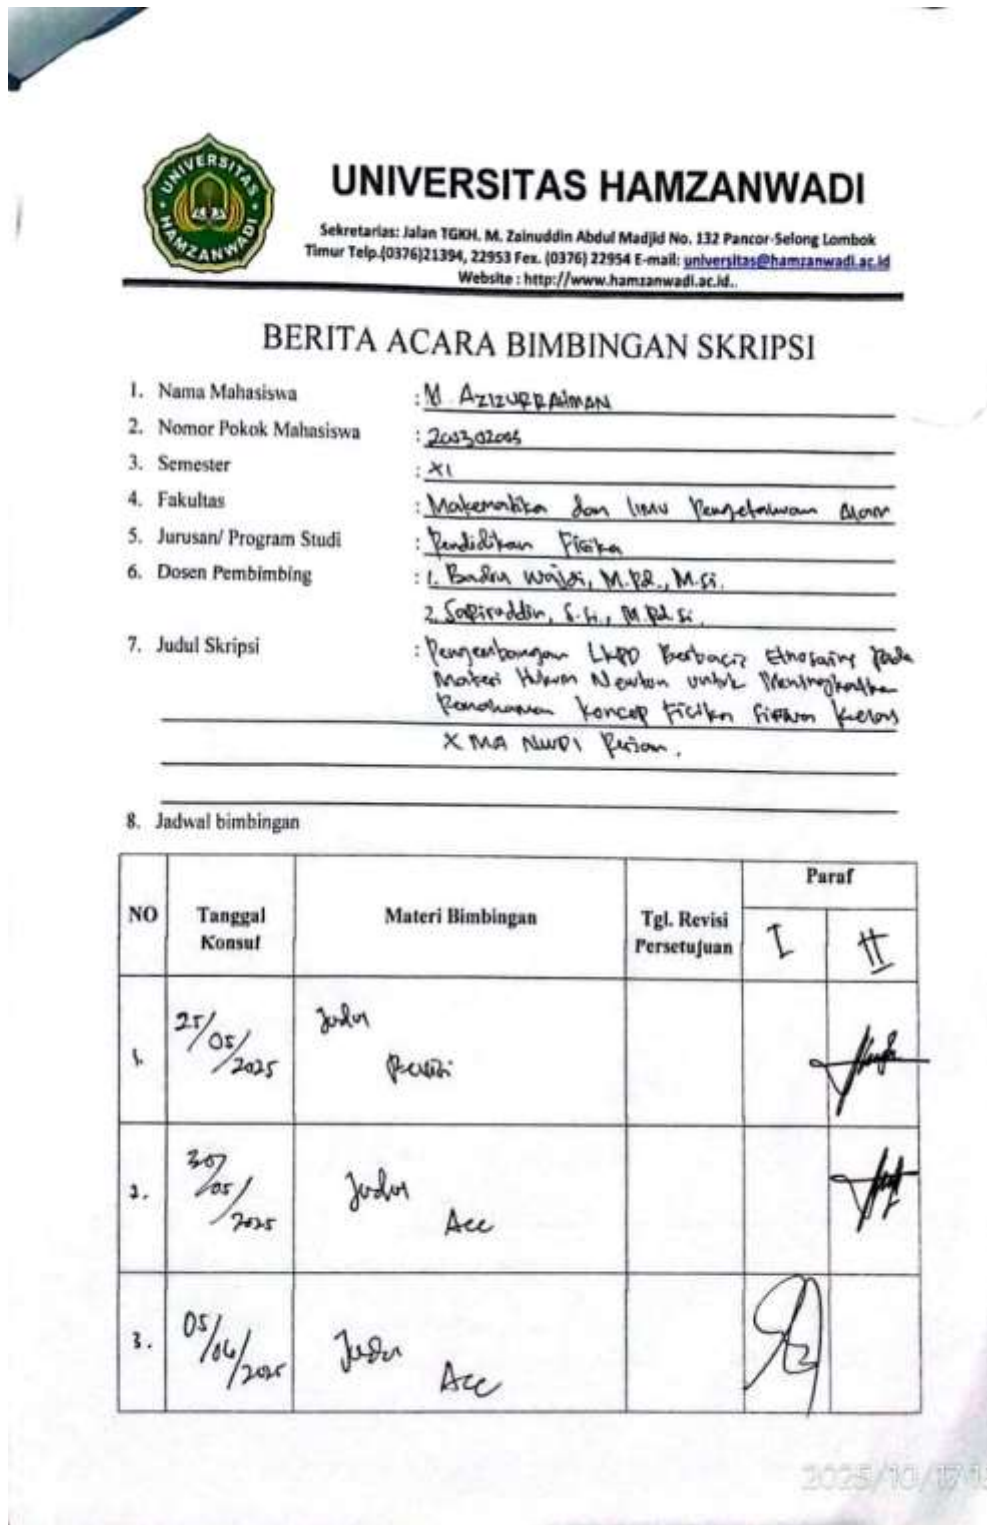 UNIVERSITAS HAMZANWADI
UNIVERSITAS HAMZANWADI
Sekretarias: Jalan TGKH. M. Zainuddin Abdul Madjid No. 132 Pancor-Selong Lombok
Timur Telp.(0376)21394, 22953 Fex. (0376) 22954 E-mail: universitas@hamzanwadi.ac.id
Website : http://www.hamzanwadi.ac.id..
BERITA ACARA BIMBINGAN SKRIPSI
1. Nama Mahasiswa : M. AZIZURRAHMAN
2. Nomor Pokok Mahasiswa :
3. Semester : XI
4. Fakultas : Matematika dan Ilmu Pengetahuan Alam
5. Jurusan/ Program Studi : Pendidikan Fisika
6. Dosen Pembimbing : 1. Badru Waldi, M.Pd., M.Si.
2. Sapiruddin, S.Si., M.Pd.Si.
7. Judul Skripsi : Pengembangan LKPD Berbasis Etnosains Pada
Materi Hukum Newton untuk Meningkatkan
Pemahaman Konsep Fisika Siswa Kelas
X MA NWDI
8. Jadwal bimbingan
NO Tanggal Konsul Materi Bimbingan Tgl. Revisi Persetujuan Paraf
I II
1. 25/05/2025 Judul
Revisi
2. 30/05/2025 Judul
Acc
3. 05/06/2025 Judul
Acc